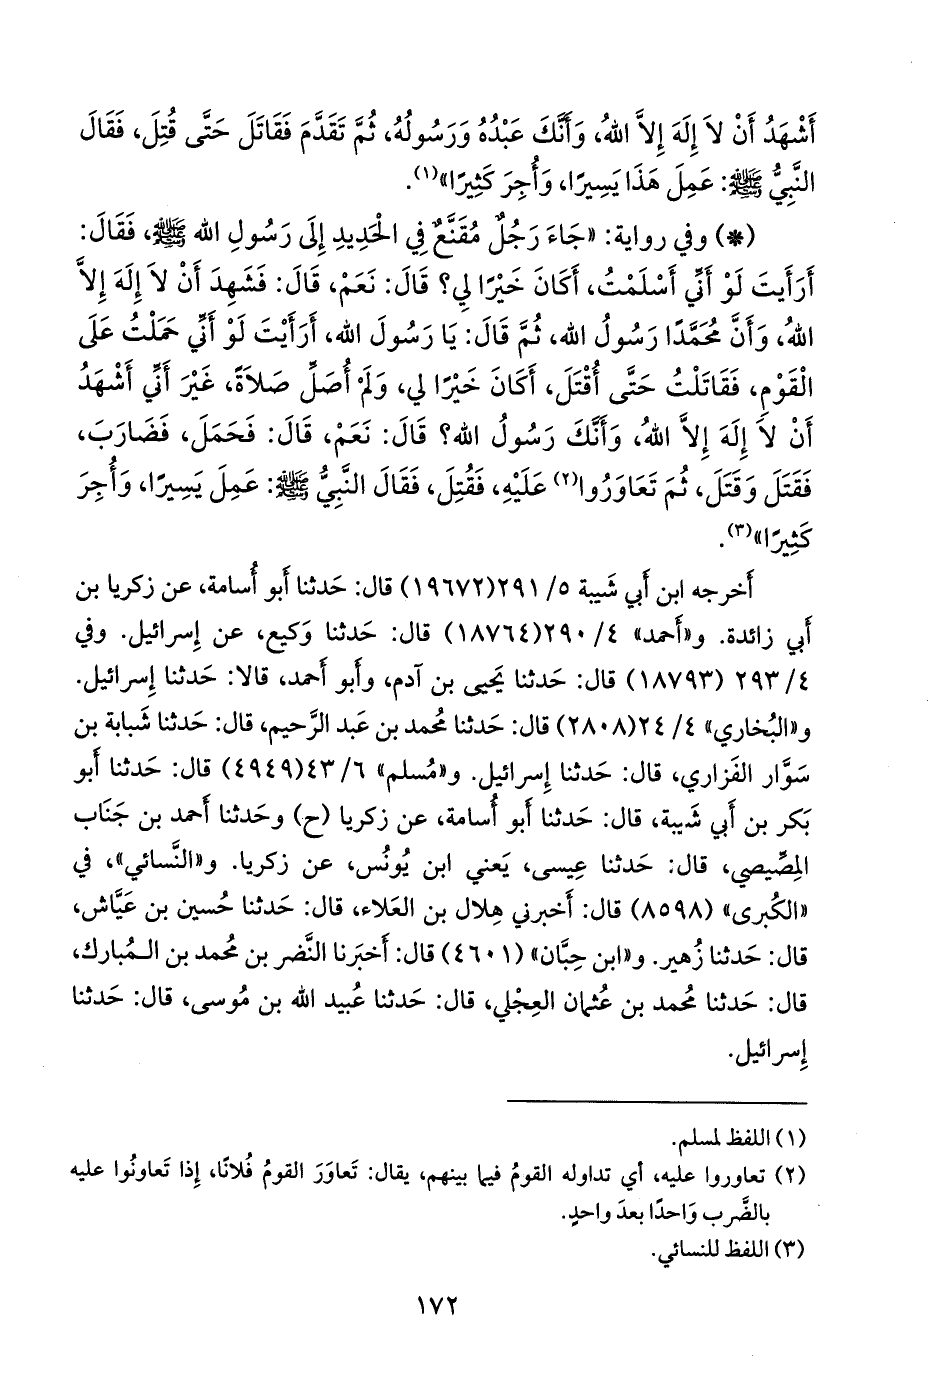 أَشْهَدُ أَنْ لاَ إِلَهَ إِلاَّ اللهُ، وَأَنَّكَ عَبْدُهُ وَرَسُولُهُ، ثُمَّ تَقَدَّمَ فَقَاتَلَ حَتَّى قُتِلَ، فَقَالَ
النَّبِيُّ ﷺ: عَمِلَ هَذَا يَسِيرًا، وَأُجِرَ كَثِيرًا»(١).
(*) وفي رواية: «جَاءَ رَجُلٌ مُقَنَّعٌ فِي الْحَدِيدِ إِلَى رَسُولِ الله ﷺ، فَقَالَ:
أَرَأَيتَ لَوْ أَنِّي أَسْلَمْتُ، أَكَانَ خَيْرًا لِي؟ قَالَ: نَعَمْ، قَالَ: فَشَهِدَ أَنْ لاَ إِلَهَ إِلاَّ
اللهُ، وَأَنَّ مُحَمَّدًا رَسُولُ الله، ثُمَّ قَالَ: يَا رَسُولَ الله، أَرَأَيْتَ لَوْ أَنِّي حَمَلْتُ عَلَى
الْقَوْمِ، فَقَاتَلْتُ حَتَّى أُقْتَلَ، أَكَانَ خَيْرًا لِي، وَلَمْ أُصَلِّ صَلاَةً، غَيْرَ أَنِّي أَشْهَدُ
أَنْ لاَ إِلَهَ إِلاَّ اللهُ، وَأَنَّكَ رَسُولُ الله؟ قَالَ: نَعَمْ، قَالَ: فَحَمَلَ، فَضَارَبَ،
فَقَتَلَ وَقَتَلَ، ثُمَّ تَعَاوَرُوا(٢) عَلَيْهِ، فَقُتِلَ، فَقَالَ النَّبِيُّ ﷺ: عَمِلَ يَسِيرًا، وَأُجِرَ
كَثِيرًا»(٣).
أَخرجه ابن أَبي شَيبة ٥/ ٢٩١(١٩٦٧٢) قال: حَدثنا أَبو أُسامة، عن زكريا بن
أَبي زائدة. و«أَحمد» ٤/ ٢٩٠(١٨٧٦٤) قال: حَدثنا وَكيع، عن إِسرائيل. وفي
٤/ ٢٩٣ (١٨٧٩٣) قال: حَدثنا يَحيى بن آدم، وأَبو أَحمد، قالا: حَدثنا إِسرائيل.
و«البُخاري» ٤/ ٢٤(٢٨٠٨) قال: حَدثنا مُحمد بن عَبد الرَّحيم، قال: حَدثنا شَبابة بن
سَوَّار الفَزاري، قال: حَدثنا إِسرائيل. و«مُسلم» ٦/ ٤٣(٤٩٤٩) قال: حَدثنا أَبو
بَكر بن أَبي شَيبة، قال: حَدثنا أَبو أُسامة، عن زكريا (ح) وحَدثنا أَحمد بن جَنَاب
المِصِّيصي، قال: حَدثنا عِيسى، يَعني ابن يُونُس، عن زكريا. و«النَّسائي»، في
«الكُبرى» (٨٥٩٨) قال: أَخبرني هِلال بن العَلاء، قال: حَدثنا حُسين بن عَيَّاش،
قال: حَدثنا زُهير. و«ابن حِبَّان» (٤٦٠١) قال: أَخبَرنا النَّضر بن مُحمد بن المُبارك،
قال: حَدثنا مُحمد بن عُثمان العِجْلي، قال: حَدثنا عُبيد الله بن مُوسى، قال: حَدثنا
إِسرائيل.
(١) اللفظ لمسلم.
(٢) تعاوروا عليه، أي تداوله القومُ فيما بينهم، يقال: تَعاوَرَ القومُ فُلانًا، إِذا تَعاونُوا عليه
بالضَّرب وَاحدًا بعدَ واحدٍ.
(٣) اللفظ للنسائي.
١٧٢